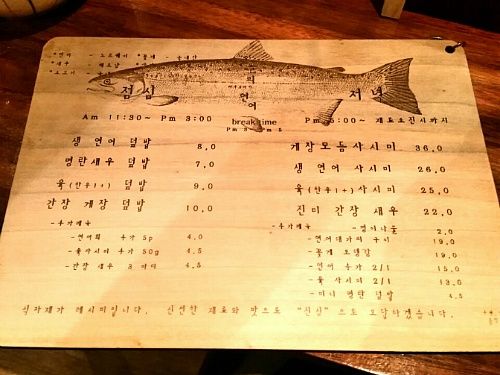 *연어 - 노르웨이 *꽃게
*새우
점심
저녁
의
연어
Am 11:30~ Pm 3:00
break time
Pm 3 ~ Pm 5
재료소진시까지
생 연어 덮밥 8,0
명란새우 덮밥 7,0
육(한우1+) 덮밥 9,0
간장 게장 덮밥 10,0
-추가메뉴
-연어회 추가 5p 4,0
-육사시미 추가 50g 4,5
-간장 새우 3 마리 4,5
게장모듬사시미 36,0
생 연어 사시미 26,0
육(한우1+)사시미 25,0
진미 간장 새우 22,0
-추가메뉴
2,0
-연어대가리 구이 19,0
-꽃게 오뎅탕 19,0
-연어 추가 2/1 15,0
-육 사시미 2/1 13,0
-미니 명란 덮밥 4,5
식자재가 레시피입니다. 신선한 재료와 맛으로 "진심"으로 보답하겠습니다.